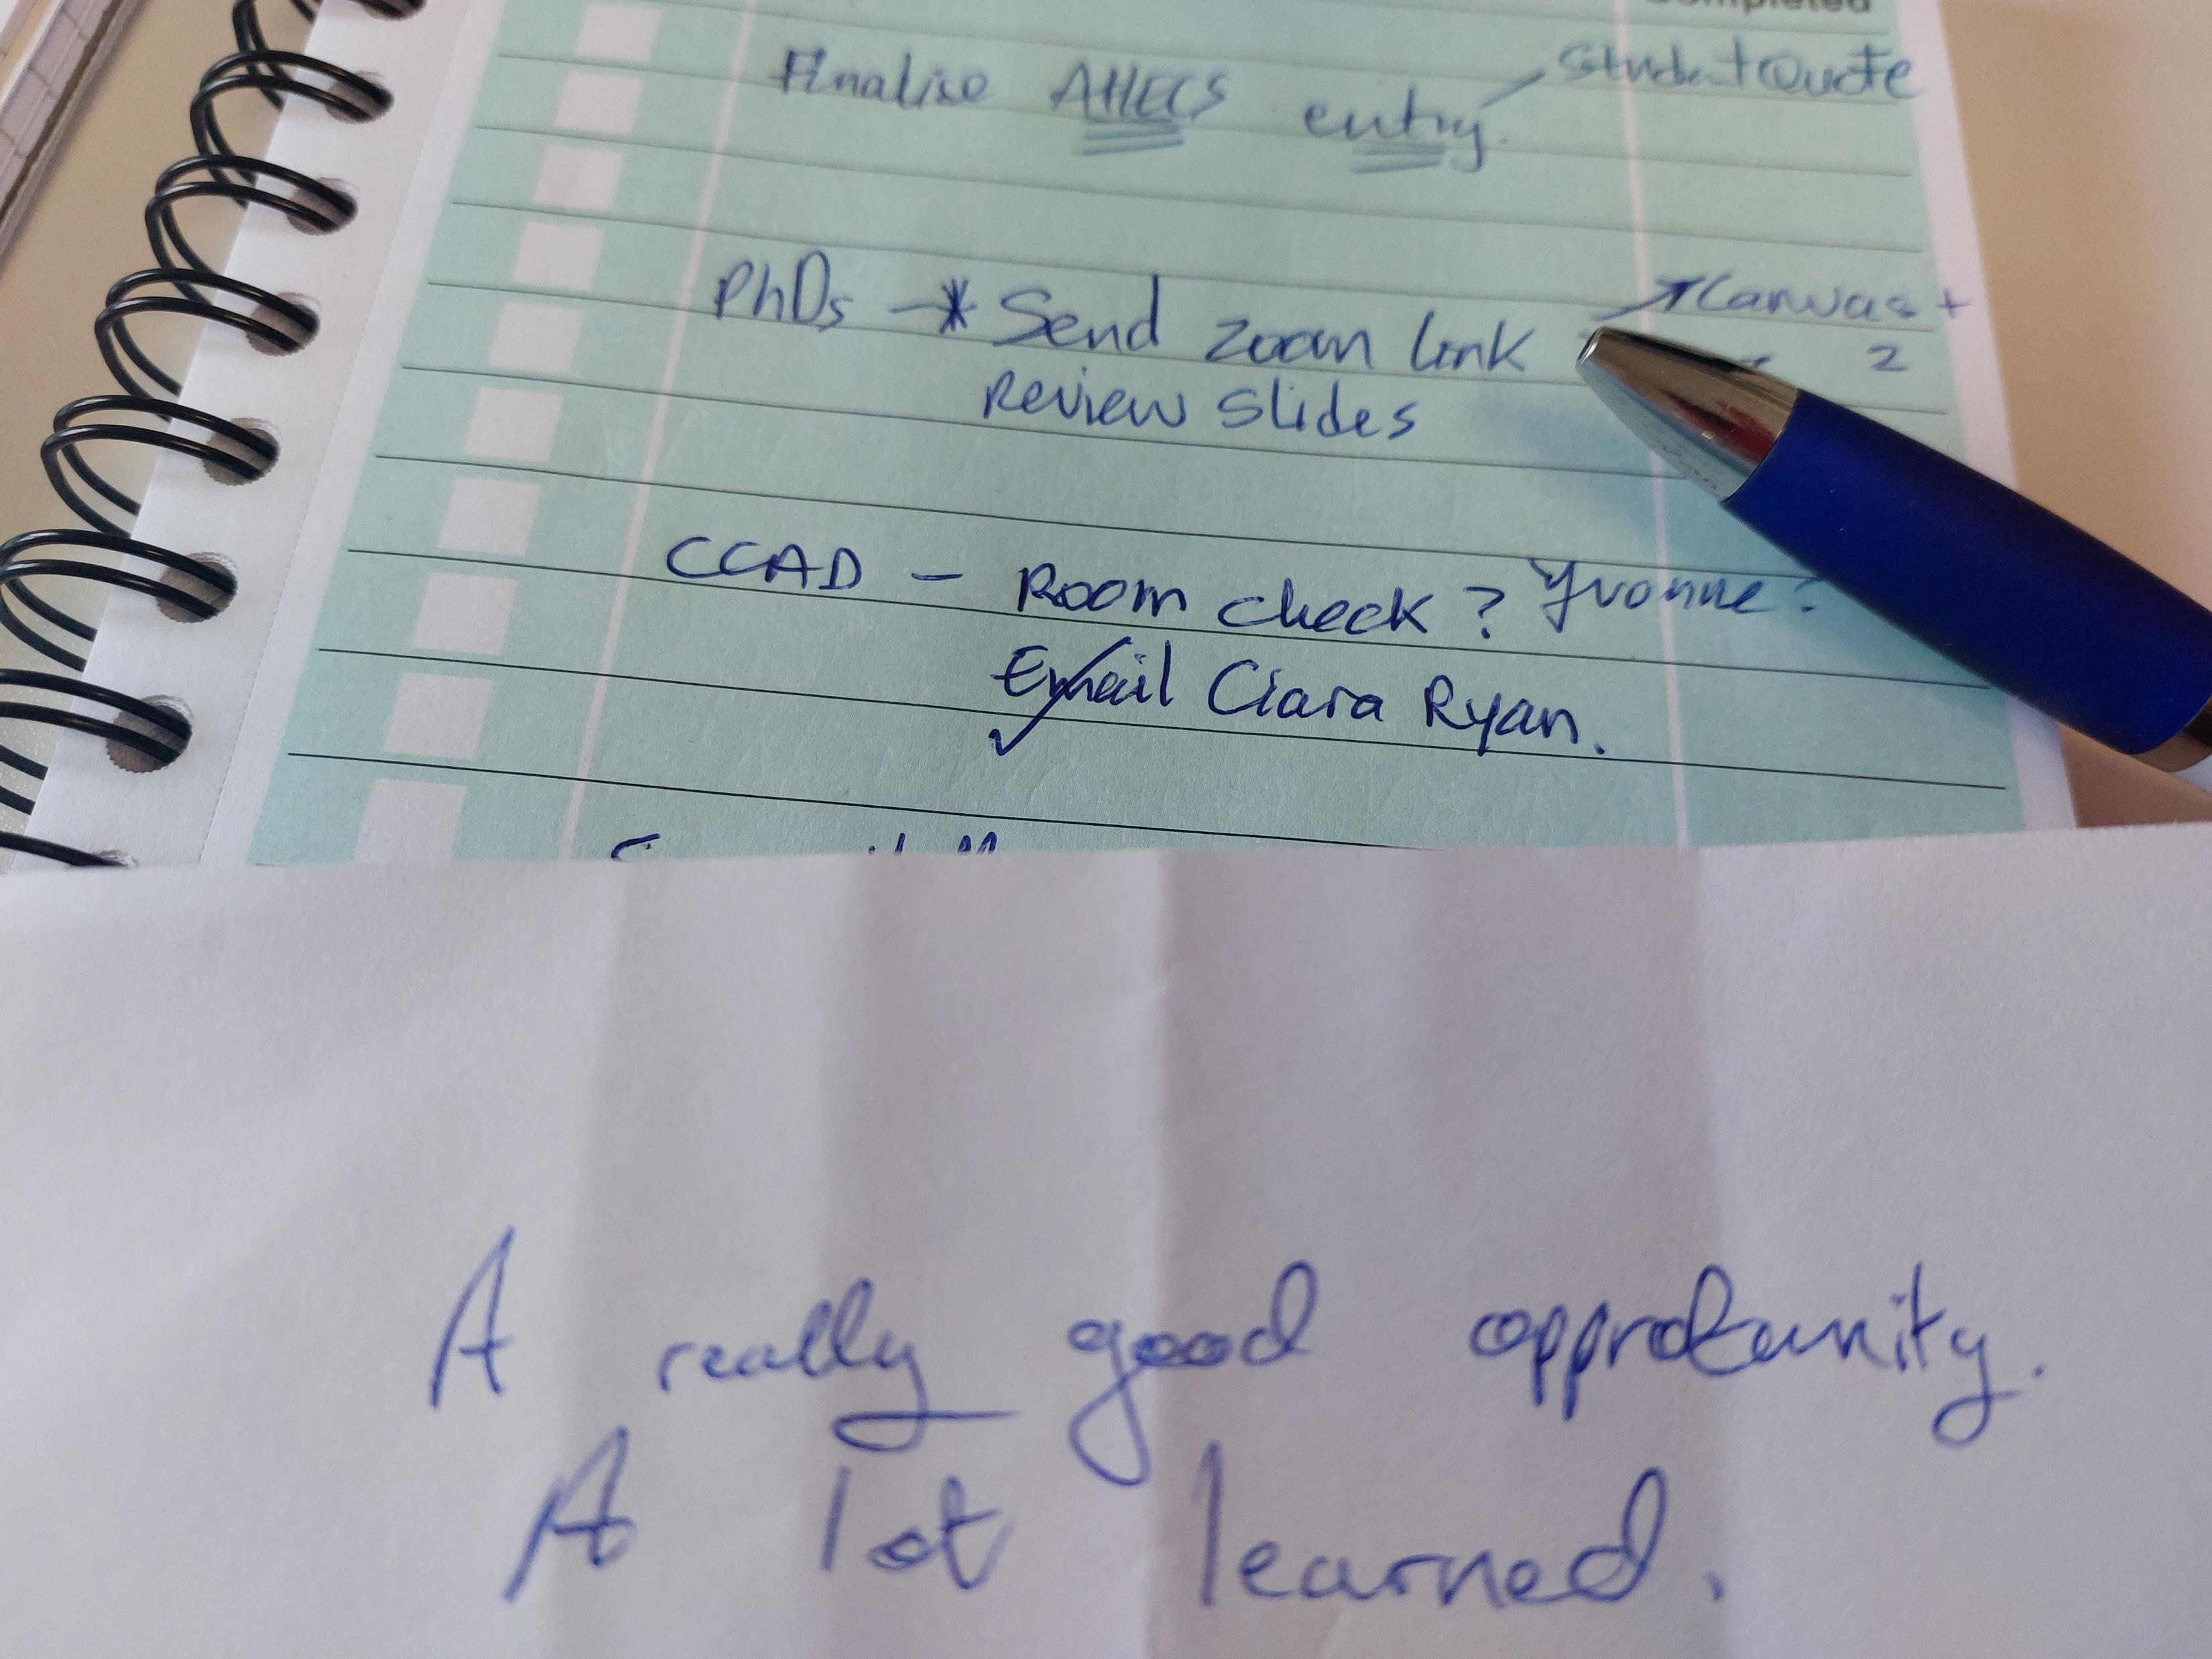 Completed
Finalise AHECS entry. Student Quote
PhDs - * Send zoom link Canvas +
Review Slides 2
CCAD - Room check? Yvonne?
Email Ciara Ryan.
A really good opprotunity.
A lot learned.